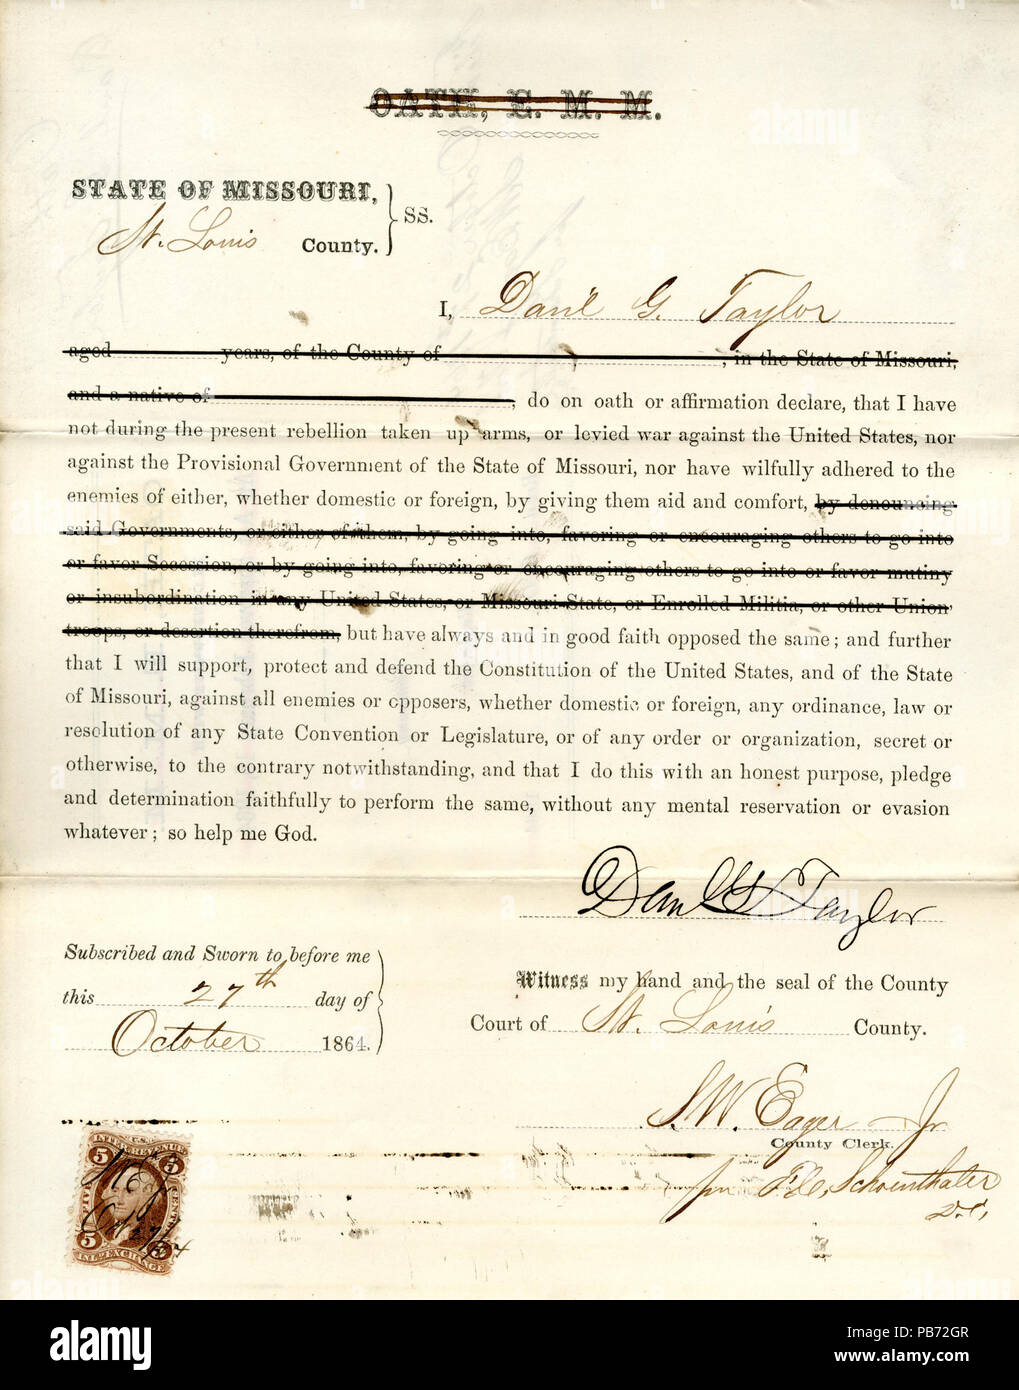 OATH, E. M. M.
STATE OF MISSOURI,
St. Louis County. } SS.
I, Dan'l G. Taylor
aged years, of the County of , in the State of Missouri,
and a native of ; do on oath or affirmation declare, that I have
not during the present rebellion taken up arms, or levied war against the United States, nor
against the Provisional Government of the State of Missouri, nor have wilfully adhered to the
enemies of either, whether domestic or foreign, by giving them aid and comfort, by denouncing
said Governments, or either of them, by going into, favoring or encouraging others to go into
or favor Secession, or by going into, favoring or encouraging others to go into or favor mutiny
or insubordination in any United States, or Missouri State, or Enrolled Militia, or other Union
troops, or desertion therefrom, but have always and in good faith opposed the same; and further
that I will support, protect and defend the Constitution of the United States, and of the State
of Missouri, against all enemies or opposers, whether domestic or foreign, any ordinance, law or
resolution of any State Convention or Legislature, or of any order or organization, secret or
otherwise, to the contrary notwithstanding, and that I do this with an honest purpose, pledge
and determination faithfully to perform the same, without any mental reservation or evasion
whatever; so help me God.
Dan'l G Taylor
Subscribed and Sworn to before me
this 27th day of
October 1864.
Witness my hand and the seal of the County
Court of St. Louis County.
S. W. Eager Jr
County Clerk.
Schoenthaler
D.C.
INTER. REVENUE
5 5
FIVE CENTS
Oct 27/64
5 5
INL. EXCHANGE
alamy
Image ID: PB72GR
www.alamy.com